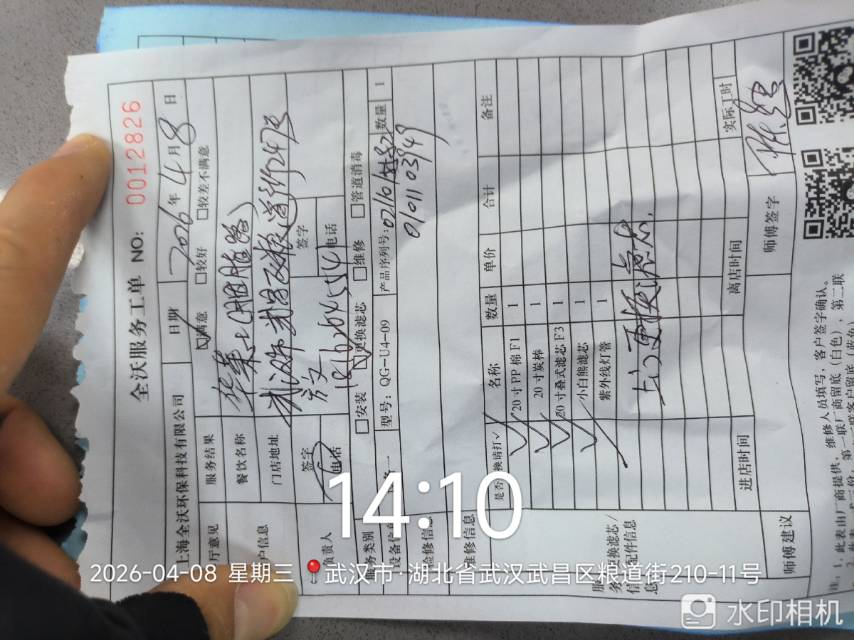 全沃服务工单 NO: 0012826
上海全沃环保科技有限公司 日期 2026年4月8日
厅意见 服务结果 满意 □较好 □较差不满意
户信息 餐饮名称 华莱士(胭脂路)
门店地址
负责人 签字 签字
电话 电话
务类别 □安装 更换滤芯 □维修 □管道消毒
设备信 型号: QG-U4-09 产品序列号: 数量 1
0101103949
检修信息
维修信息
更换滤芯/
配件信息
是否更换请打✓ 名称 数量 单价 合计 备注
✓ 20寸PP棉F1 1
✓ 20寸炭棒 1
✓ 20寸叠式滤芯F3 1
✓ 小白熊滤芯 1
紫外线灯管 1
上门更换滤芯.
进店时间 离店时间 实际工时
师傅建议 师傅签字
注: 1, 此表由厂商提供, 维修人员填写, 客户签字确认。
第一联厂商留底(白色), 第二联
14:10
2026-04-08 星期三 武汉市·湖北省武汉武昌区粮道街210-11号
水印相机